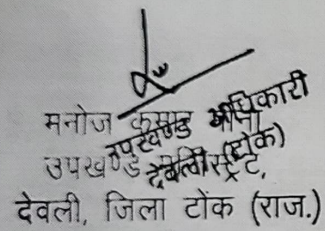 मनोज कुमार मीणा
उपखण्ड मजिस्ट्रेट,
देवली, जिला टोंक (राज.)
उपखण्ड अधिकारी
देवली (टोंक)